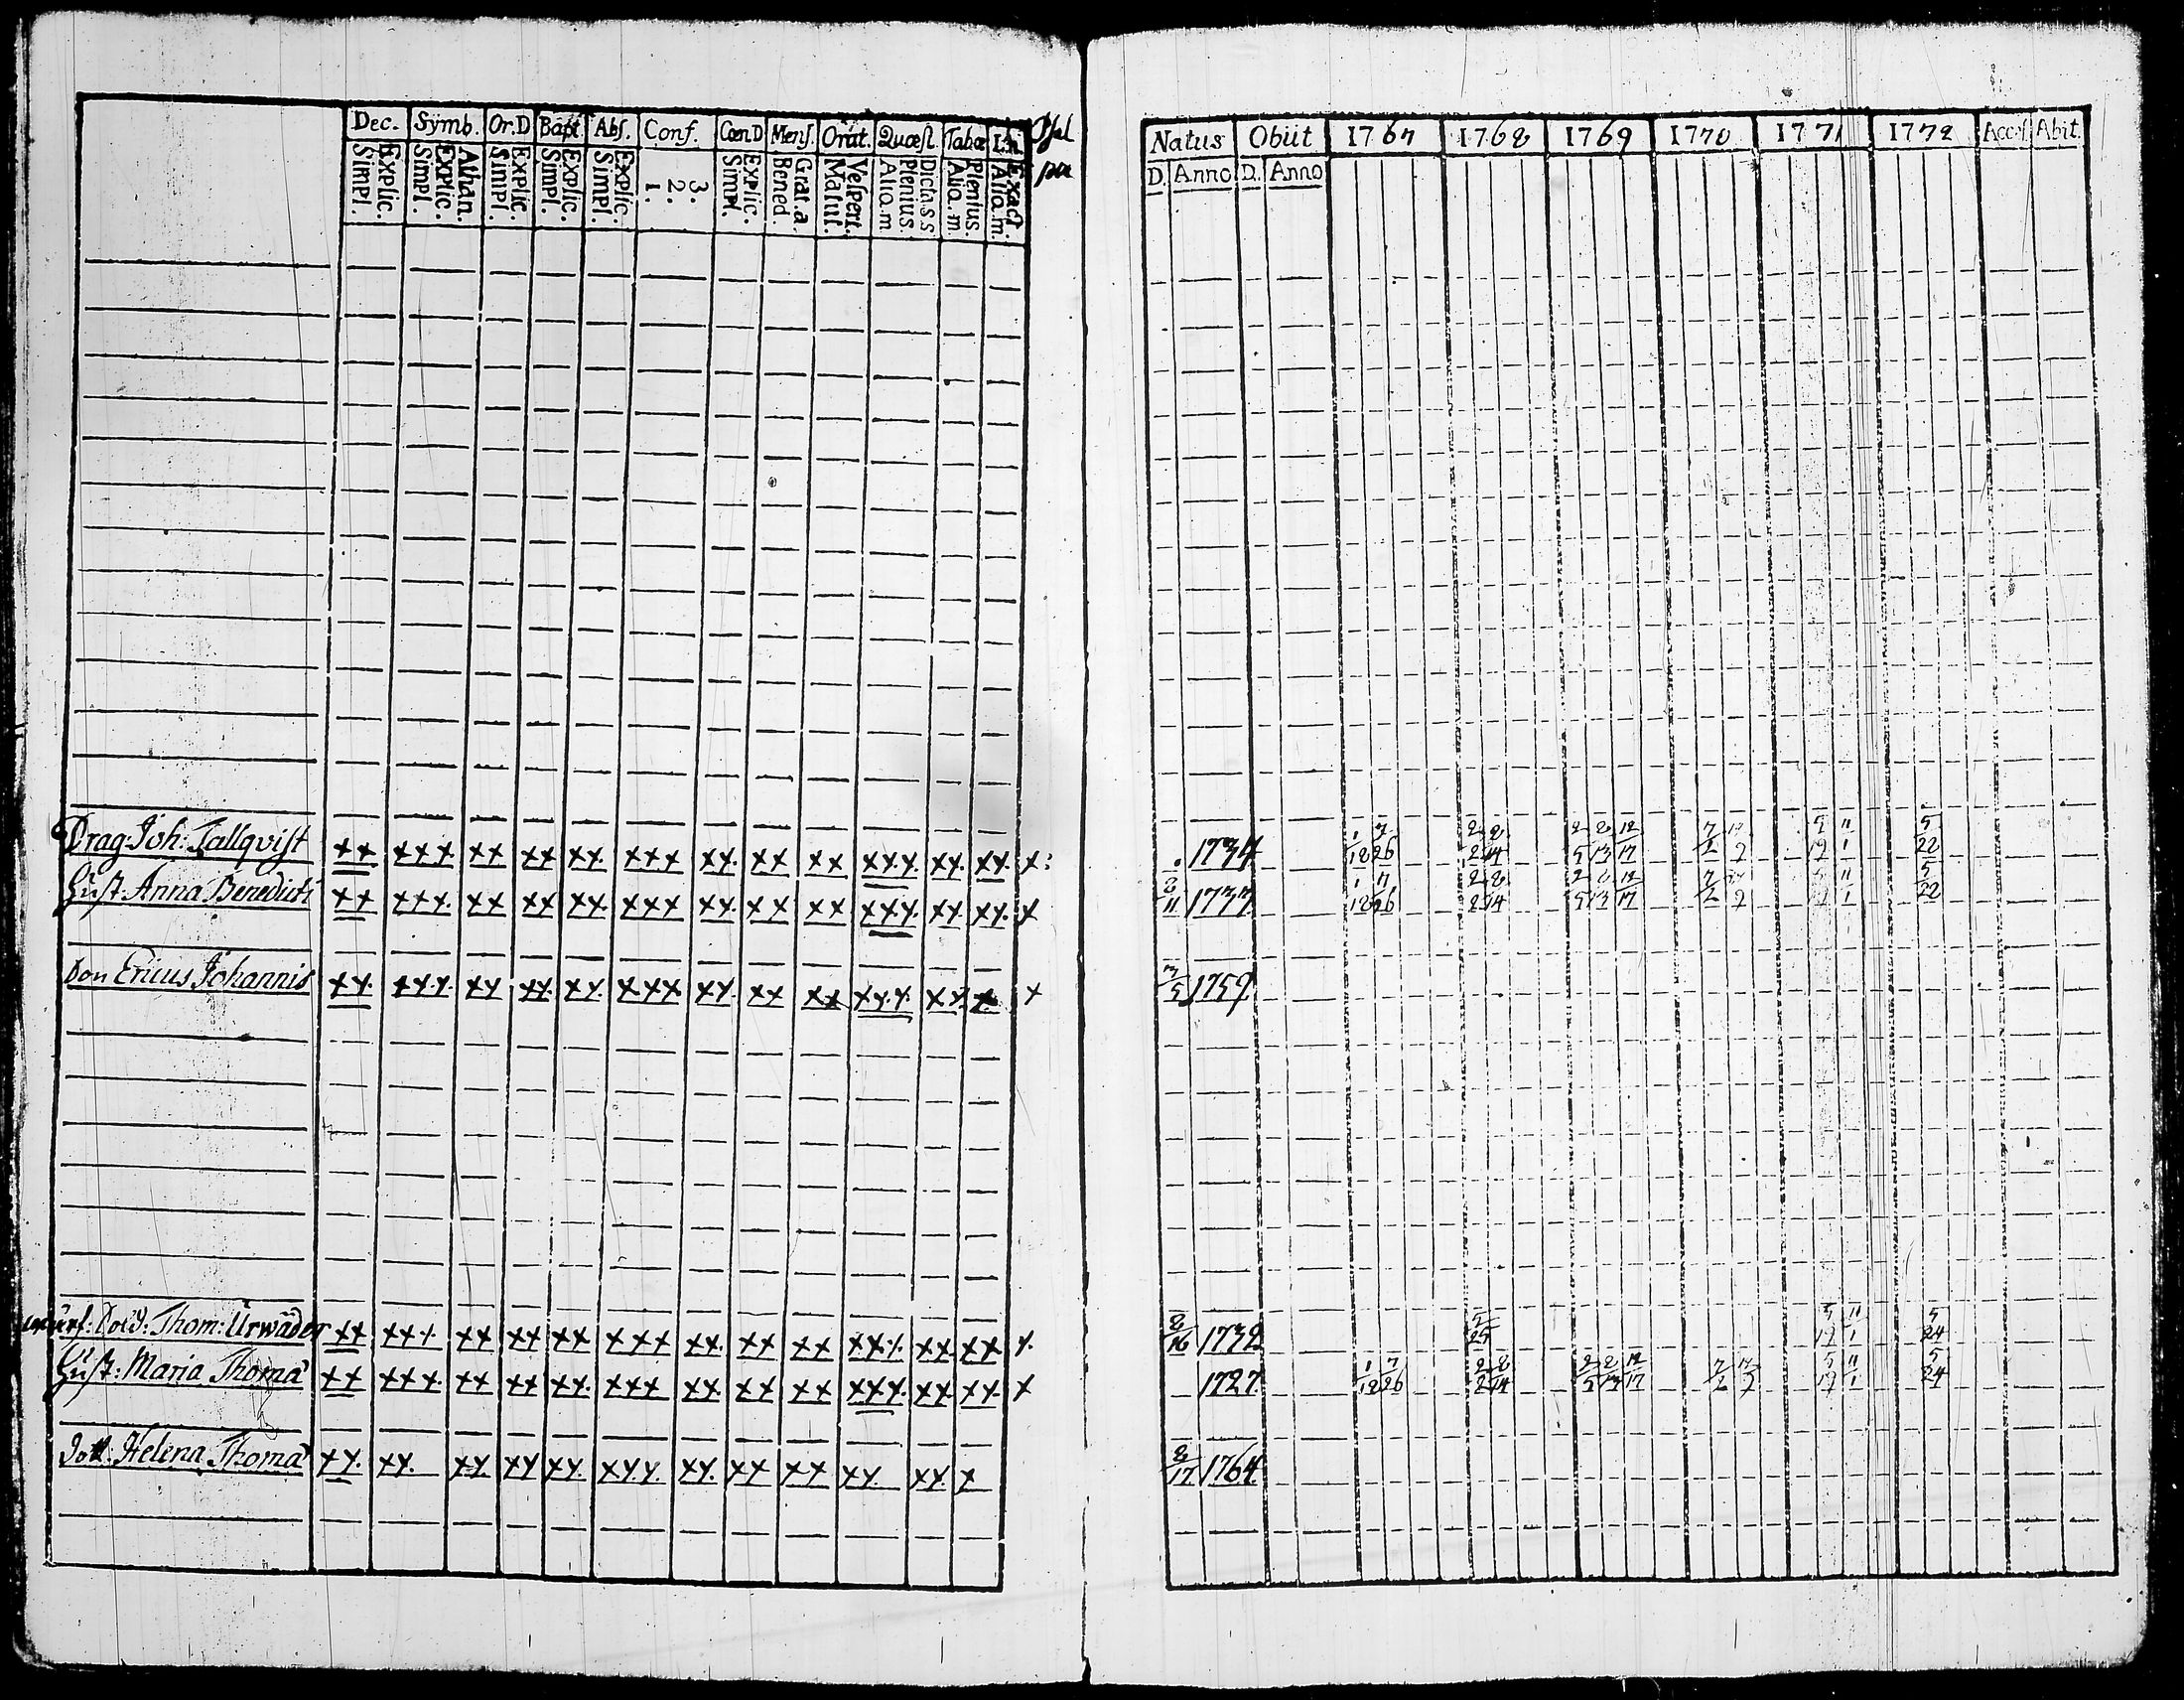 Dec. Symb. Or.D Bapt. Abs. Conf. Cœn D Mens. Orat. Quæst. Tabœ L.n. Psal
Simpl. Explic. Simpl. Explic. Athan. Simpl. Explic. Simpl. Explic. Simpl. Explic. 1. 2. 3. Simpl. Explic. Bened. Grat.a. Matut. Vespert. Alio.m Plenius. Dicta.s.s Alio.m. Plenius. Alio.m. Exact.
Natus Obiit 1767 1768 1769 1770 1771 1772 Access. Abit.
D. Anno D. Anno
Drag. Joh: Tallqvist xx xxx xx xx xx xxx xx xx xx xxx xx xx x 1734 1/18 7/26 2/2 8/14 2/5 8/13 12/17 7/2 5/19 11/1 5/22
Hust. Anna Benedicti xx xxx xx xx xx xxx xx xx xx xxx xx xx x 8/11 1737 1/18 7/26 2/2 8/14 2/5 8/13 12/17 7/2 5/19 11/1 5/22
Son Ericus Johannis xx xxx xx xx xx xxx xx xx xx xxx xx x x 1759
Thom: Urwäder xx xxx xx xx xx xxx xx xx xx xxx xx xx x 8/16 1732 5/25 5/19 11/1 5/24
Hust: Maria Thomæ xx xxx xx xx xx xxx xx xx xx xxx xx xx x 1727 1/18 7/26 2/2 8/14 2/5 8/13 12/17 7/2 5/19 11/1 5/24
Dott. Helena Thomæ xx xx xx xx xx xxx xx xx xx xx xx x 8/17 1764